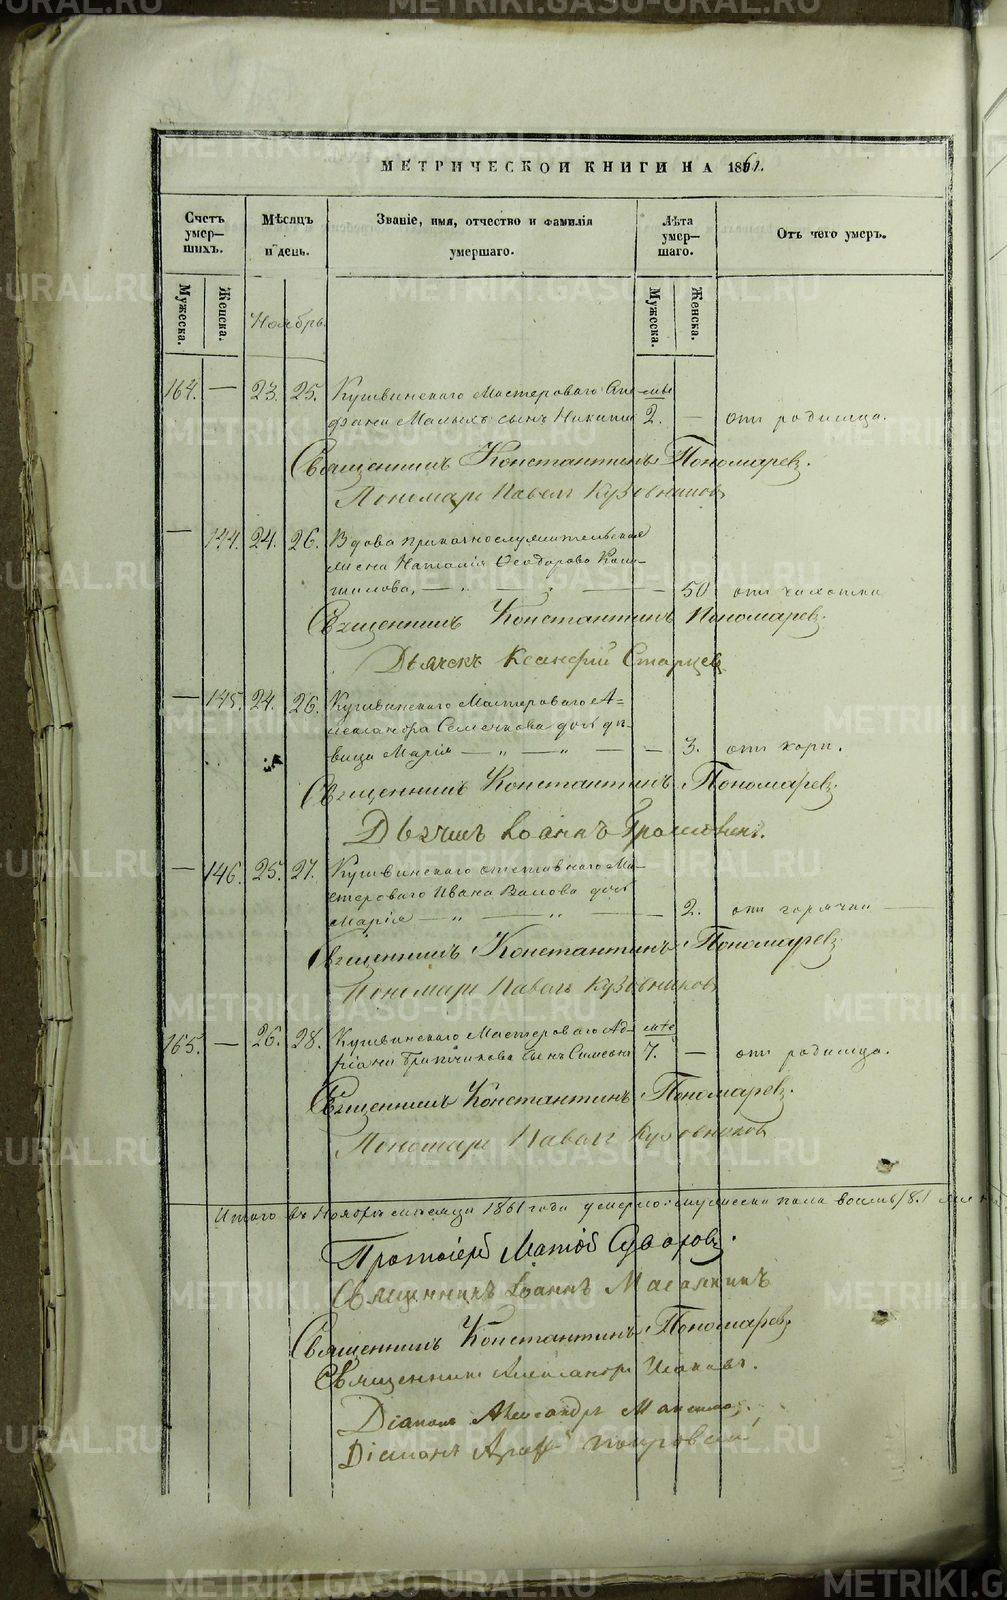 МЕТРИЧЕСКОЙ КНИГИ НА 1861.
Счетъ умер-шихъ.
Мѣсяцъ и день.
Званіе, имя, отчество и фамилія умершаго.
Лѣта умер-шаго.
Отъ чего умеръ.
Мужеска.
Женска.
Мужеска.
Женска.
Ноябрь.
164. — 23. 25. Кушвинскаго Мастероваго
Малыхъ сынъ Никита 2. — отъ родимца.
Священникъ Константинъ Пономаревъ.
Пономарь Павелъ Кузовниковъ
— 144. 24. 26. Вдова приказнослужительская
жена Наталія Ѳеодорова
50 отъ чахотки
Священникъ Константинъ Пономаревъ.
Дьячекъ Ксанфій Старцев
— 145. 24. 26. Кушвинскаго Мастероваго А-
лександра Семечкова дочь дѣ-
вица Марія — „ — „ — — 3. отъ кори.
Священникъ Константинъ Пономаревъ.
Дьячекъ Іоаннъ
— 146. 25. 27. Кушвинскаго отставнаго Ма-
стероваго Ивана дочь
Марія — „ — „ — 2. отъ горячки —
Священникъ Константинъ Пономаревъ
Пономарь Павелъ Кузовниковъ
165. — 26. 28. Кушвинскаго Мастероваго Ад-
ріана сынъ Симеонъ 7. — отъ родимца.
Священникъ Константинъ Пономаревъ.
Пономарь Павелъ Кузовниковъ
Итого въ Ноябрѣ мѣсяцѣ 1861 года умерло: мужеска пола восемь /8./
Протоіерей Матѳій Суворовъ.
Священникъ Іоаннъ
Священникъ Константинъ Пономаревъ.
Священникъ Александръ
Діаконъ Александръ
Діаконъ Покровскій
METRIKI.GASO-URAL.RU